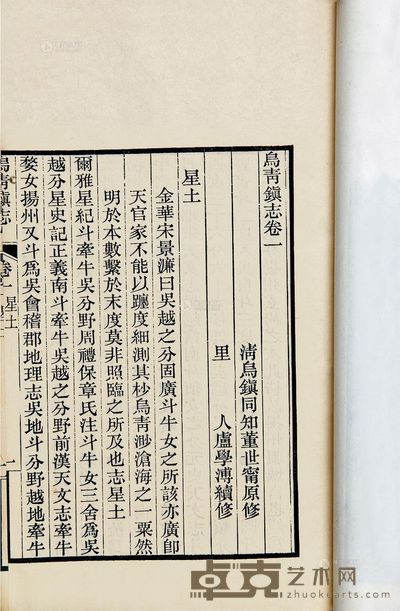 烏青鎮志卷一
清烏鎮同知董世甯原修
里人盧學溥續修
星土
金華宋景濂曰吳越之分固廣斗牛女之所該亦廣卽
天官家不能以躔度細測其杪烏青渺滄海之一粟然
明於本數繫於末度莫非照臨之所及也志星土
爾雅星紀斗牽牛吳分野周禮保章氏注斗牛女三舍爲吳
越分星史記正義南斗牽牛吳越之分野前漢天文志牽牛
婺女揚州又斗爲吳會稽郡地理志吳地斗分野越地牽牛
烏青鎮志
卷一
星土
卓克艺术网
www.zhuokearts.com